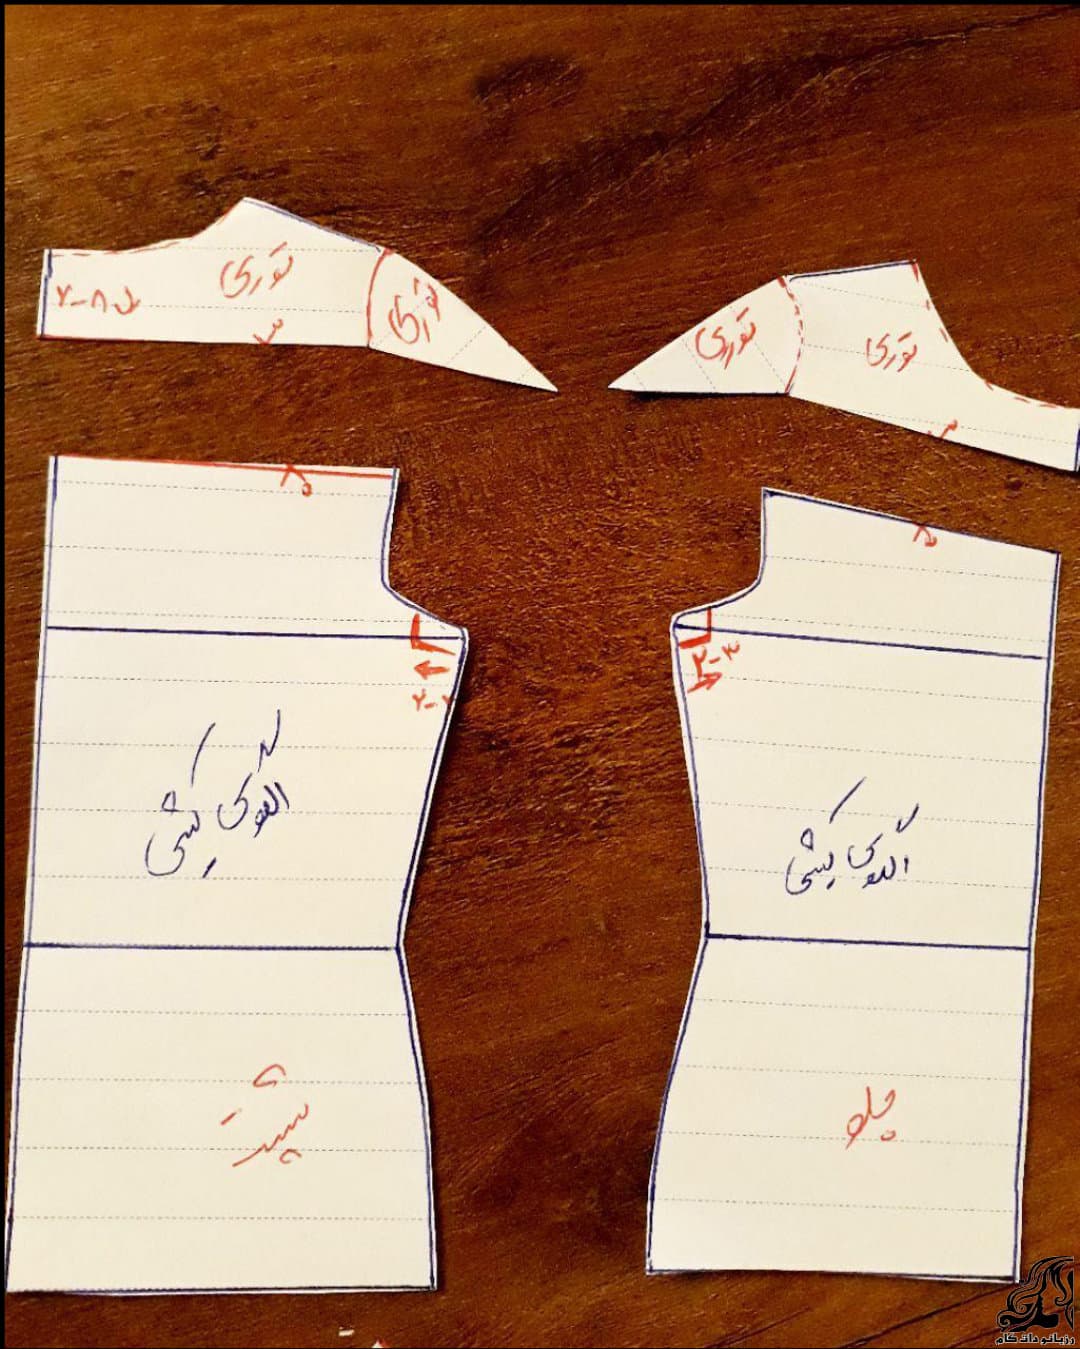 توری
توری
توری
توری
۳
۳
۲-۳
الگوی کشی
الگوی کشی
پشت
جلو
رزبانو دات کام